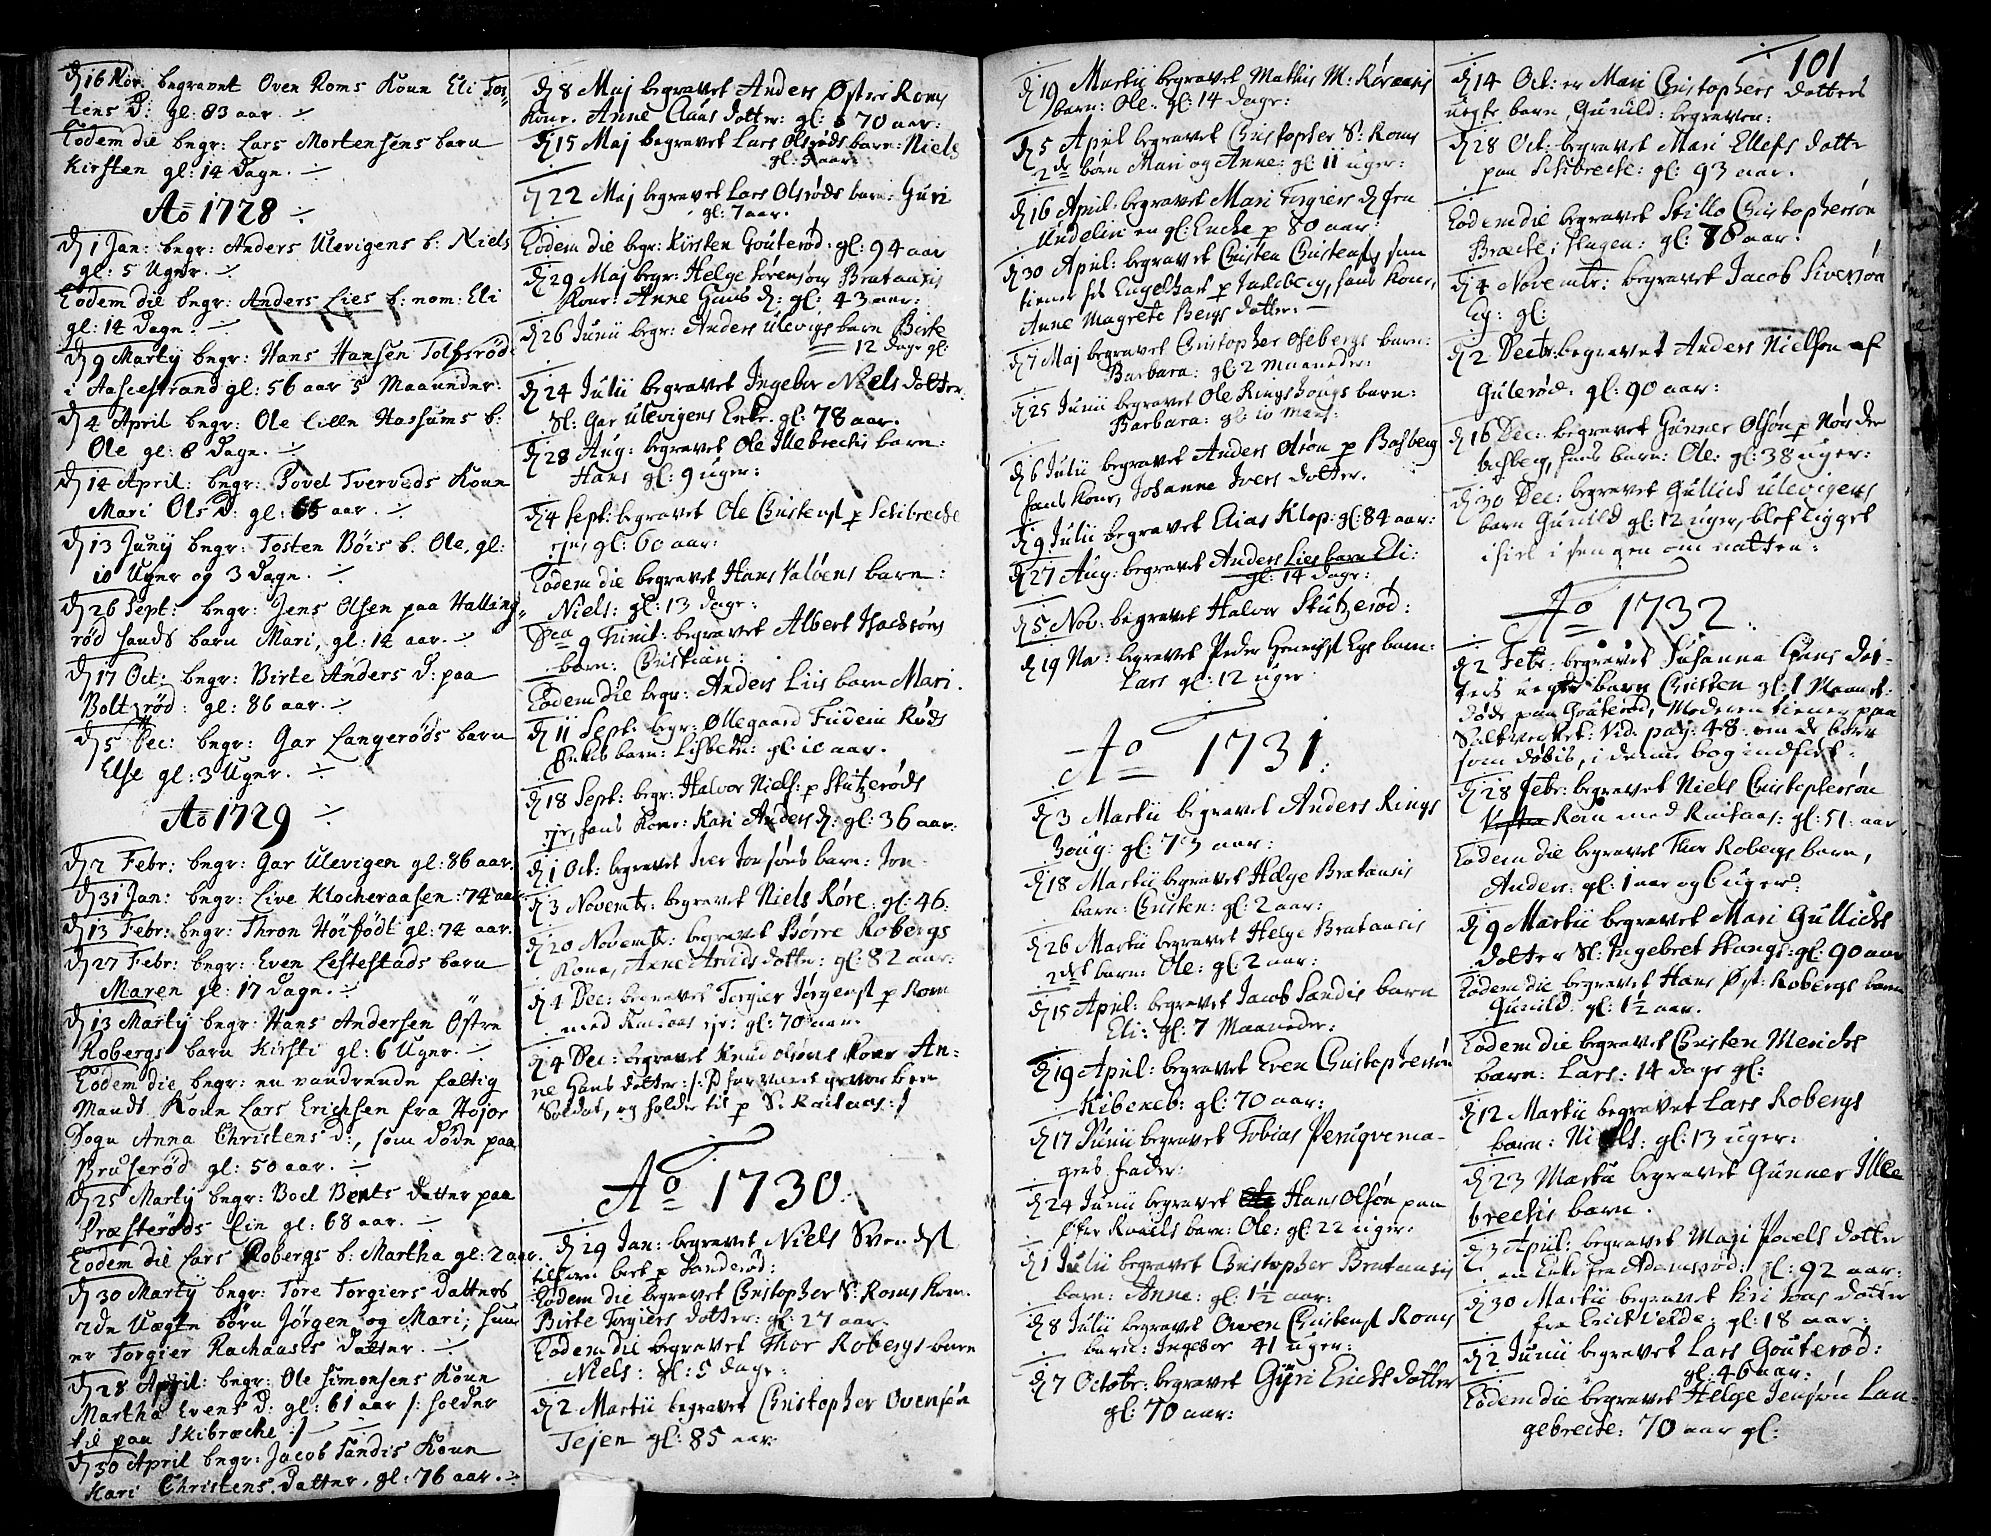 d 16 Nov: begravet Oven Roms Kone Eli Tos-
tens D: gl: 83 aar. ÷
Eodem die begr: Lars Mortensens barn
Kirsten gl: 14 Dage. ÷
Ao 1728 ÷
d 1 Jan: begr: Anders Ulevigens b: Niels
gl: 5 Uger. ÷
Eodem die begr: Anders Lies b: nom: Eli
gl: 14 Dage. ÷
d 9 Martij begr: Hans Hansen Tolfsrød
i Aasgestrand gl: 56 aar 5 Maaneder.
d 4 April begr: Ole Lille Hassums b:
Ole gl: 8 Dage. ÷
d 14 April: begr: Povel Tverveds Kone
Mari Ols D: gl: 65 aar. ÷
d 13 Junij begr: Tosten Bøis b. Ole, gl:
10 Uger og 3 Dage. ÷
d 26 Sept: begr: Jens Olsen paa Halling-
rød hands barn Mari, gl: 14 aar. ÷
d 17 Oct: begr: Birte Anders D: paa
Boltzrød: gl: 86 aar. ÷
d 5 Dec: begr: Gar Langerøds barn
Else gl: 3 Uger. ÷
Ao 1729 ÷
d 2 Febr: begr: Gar Ulevigen gl: 86 aar.
d 31 Jan: begr: Live Klocheraasen: 74 aar
d 13 Febr: begr: Thron Høifødt gl: 74 aar.
d 27 Febr: begr: Even Lestestads barn
Maren gl: 17 Dage. ÷
d 13 Martij begr: Hans Andersen Østre
Robergs barn Kirsti gl: 6 Uger. ÷
Eodem die begr: en vandrende fattig
Mands Kone Lars Erichsen fra Hojer
Sogn Anna Christens D:, som døde paa
Bruserød gl: 50 aar. ÷
d 25 Martij begr: Boel Bents datter paa
Præsterøds Eie gl: 68 aar. ÷
Eodem die Lars Robergs b: Martha gl: 2 aar.
d 30 Martij begr: Tore Torgiers Datters
2de Uægte børn Jørgen og Mari; hun
er Torgier Rachaases Datter. ÷
d 28 April: begr: Ole Simonsens Kone
Martha Evens D: gl: 61 aar /: holder
til paa Skibreche :/ ÷
d 30 April begr: Jacob Sandis Kone
Kari Christens Datter, gl: 76 aar. ÷
d 8 Maj begravet Anders Østre Roms
Kone. Anne Claus dotter: gl: 70 aar:
d 15 Maj begravet Lars Olsrøds barn: Niels
gl: 9 aar:
d 22 Maj begravet Lars Olsrøds barn: Guri
gl: 7 aar.
Eodem die begr: Kirsten Gouterød: gl: 94 aar
d 29 Maj begr: Helge Sørensøns Bratansis
Kone: Anne Hans D: gl: 43 aar:
d 26 Junii begr: Anders Ulevigs barn Birte
12 dage gl:
d 24 Julii begravet Ingebor Niels dotter
Sl: Gar Ulevigens Enke. gl: 78 aar.
d 28 Aug: begravet Ole Illebrechis barn:
Hans gl: 9 uger:
d 4 Sept: begravet Ole Christenss: p Schibreche
eje, gl: 60 aar:
Eodem die begravet Hans Valøens barn:
Niels: gl: 13 dage:
Dca 9 Trinit: begravet Albert Isachsøns
barn: Christian:
Eodem die begr: Anders Liis barn Mari.
d 11 Sept: begr: Øllegaard Røds
Enkes barn: Lisbeth: gl: 10 aar.
d 18 Sept: begr: Halvor Niels: p Stutzerøds
eje, hans Kone: Kari Anders D: gl: 36 aar:
d 1 Oct: begravet Iver Jonsøns barn: Jon.
d 3 Novembr: begravet Niels Røre: gl: 46:
d 20 Novembr: begravet Børre Robergs
Kone, Anne Arnids dotter: gl: 82 aar:
d 4 Dec: begravet Torgier Jørgenss: p Rom
med Ramsaas eje: gl: 70 aar.
d 4 Dec: begravet Knud Olsøns Kone An-
ne Hans dotter: /: P: forrige geworben
Soldat, og holder til p S: Raelaas: /
Ao 1730:
d 29 Jan: begravet Niels Svendss:
p Sanderød:
Eodem die begravet Christopher S: Roms Kone.
Birte Torgiers dotter: gl: 27 aar.
Eodem die begravet Thor Robergs barn
Niels: gl: 5 dage:
d 2 Martii begravet Christopher Ovensøn
Tejen gl: 85 aar
101
d 19 Martii begravet Mathis M: Røraasis
barn: Ole: gl: 14 dage:
d 5 April begravet Christopher S: Roms
2de børn Mari og Anne: gl: 11 uger:
d 16 April: begravet Mari Torgiers D fra
Undelin en gl: Encke p 80 aar:
d 30 April: begravet Christen Christenss: som
tiener hos Engelhart p Jarlsberg, hans Kone,
Anne Magrete Bergs dotter: —
d 7 Maj begravet Christopher Osebergs barn:
Barbara: gl: 2 maaneder:
d 25 Junii begravet Ole Ringshougs barn:
Barbara: gl: 10
d 6 Julii begravet Anders Olsøn p Basberg
hans Kone, Johanne Ivers dotter.
d 9 Julii begravet Elias Klop: gl: 84 aar:
d 27 Aug: begravet Anders Lies barn Eli:
gl: 14 dage:
d 5 Nov: begravet Halvor Stutzerød:
d 19 Nov: begravet Peder Henrichss: Eys barn:
Lars gl: 12 uger
Ao 1731:
d 3 Martii begravet Anders Rings
houg: gl: 73 aar:
d 18 Martii begravet Helge Bratansis
barn: Christen: gl: 2 aar:
d 26 Martii begravet Helge Bratansis
2det barn: Ole: gl: 2 aar:
d 15 April: begravet Jacob Sandis barn
Eli: gl: 7 Maaneder:
d 19 April: begravet Even Christophersøn
Kibeneb: gl: 70 aar:
d 17 Junii begravet Tobias Peruqvema-
gers fader:
d 24 Junii begravet Hans Olsøn paa
Raaels barn: Ole: gl: 22 uger:
d 1 Julii begravet Christopher Bratansis
barn: Anne: gl: 1½ aar:
d 8 Julii begravet Owen Christenss: Roms
barn: Ingebor 41 uger:
d 7 Octobr: begravet Gyri Erichs dotter
gl: 70 aar:
d 14 Oct: er Mari Christophers dotters
uegte barn, Gunild: begraven:
d 28 Oct: begravet Mari Ellefs dotter
paa Schibreche: gl: 93 aar.
Eodem die begravet Stillo Christophersøn
Breche i Slagen: gl: 78 aar:
d 4 Novembr: begravet Jacob Siversøn
Ey: gl:
d 2 Decbr: begravet Anders Nielsøn af
Gulerød: gl: 90 aar:
d 16 Dec: begravet Gunner Olsøn p Nordre
basberg, hans barn: Ole: gl: 38 uger:
d 30 Dec: begravet Gullich Ulevigens
barn Gunild gl: 12 uger, blef ligget
ihiel i sengen om natten:
Ao 1732:
d 2 Febr: begravet Susanna Hans dot-
ters uegte barn Christen gl: 1 Maaned:
døde paa Gouterød, Moderen tiener paa
Saltverket: Vid. pag: 48. om de børn
som døbis, i denne bog indført:
d 28 Febr: begravet Niels Christophersøn
Rom med Ramsaas: gl: 51: aar
Eodem die begravet Thor Robergs barn,
Anders: gl: 1 aar og 6 uger:
d 9 Martii begravet Mari Gullichs
dotter Sl: Ingebret Stangs: gl: 90 aar
Eodem die begravet Hans Øst: Robergs barn
Gunild: gl: 1½ aar.
Eodem die begravet Christen Merichs
barn: Lars: 14 dage gl:
d 12 Martii begravet Lars Robergs
barn: Niels: gl: 13 uger:
d 23 Martii begravet Gunner Ille
brechis barn.
d 3 April: begravet Mari Povels dotter
en Enke fra Adamsrød: gl: 92 aar:
d 30 Martii begravet dotter
fra: gl: 18 aar:
d 2 Junii begravet Lars Gouterød:
gl: 46 aar:
Eodem die begravet Helge Jensøn Lan-
gebreche: 70 aar gl: